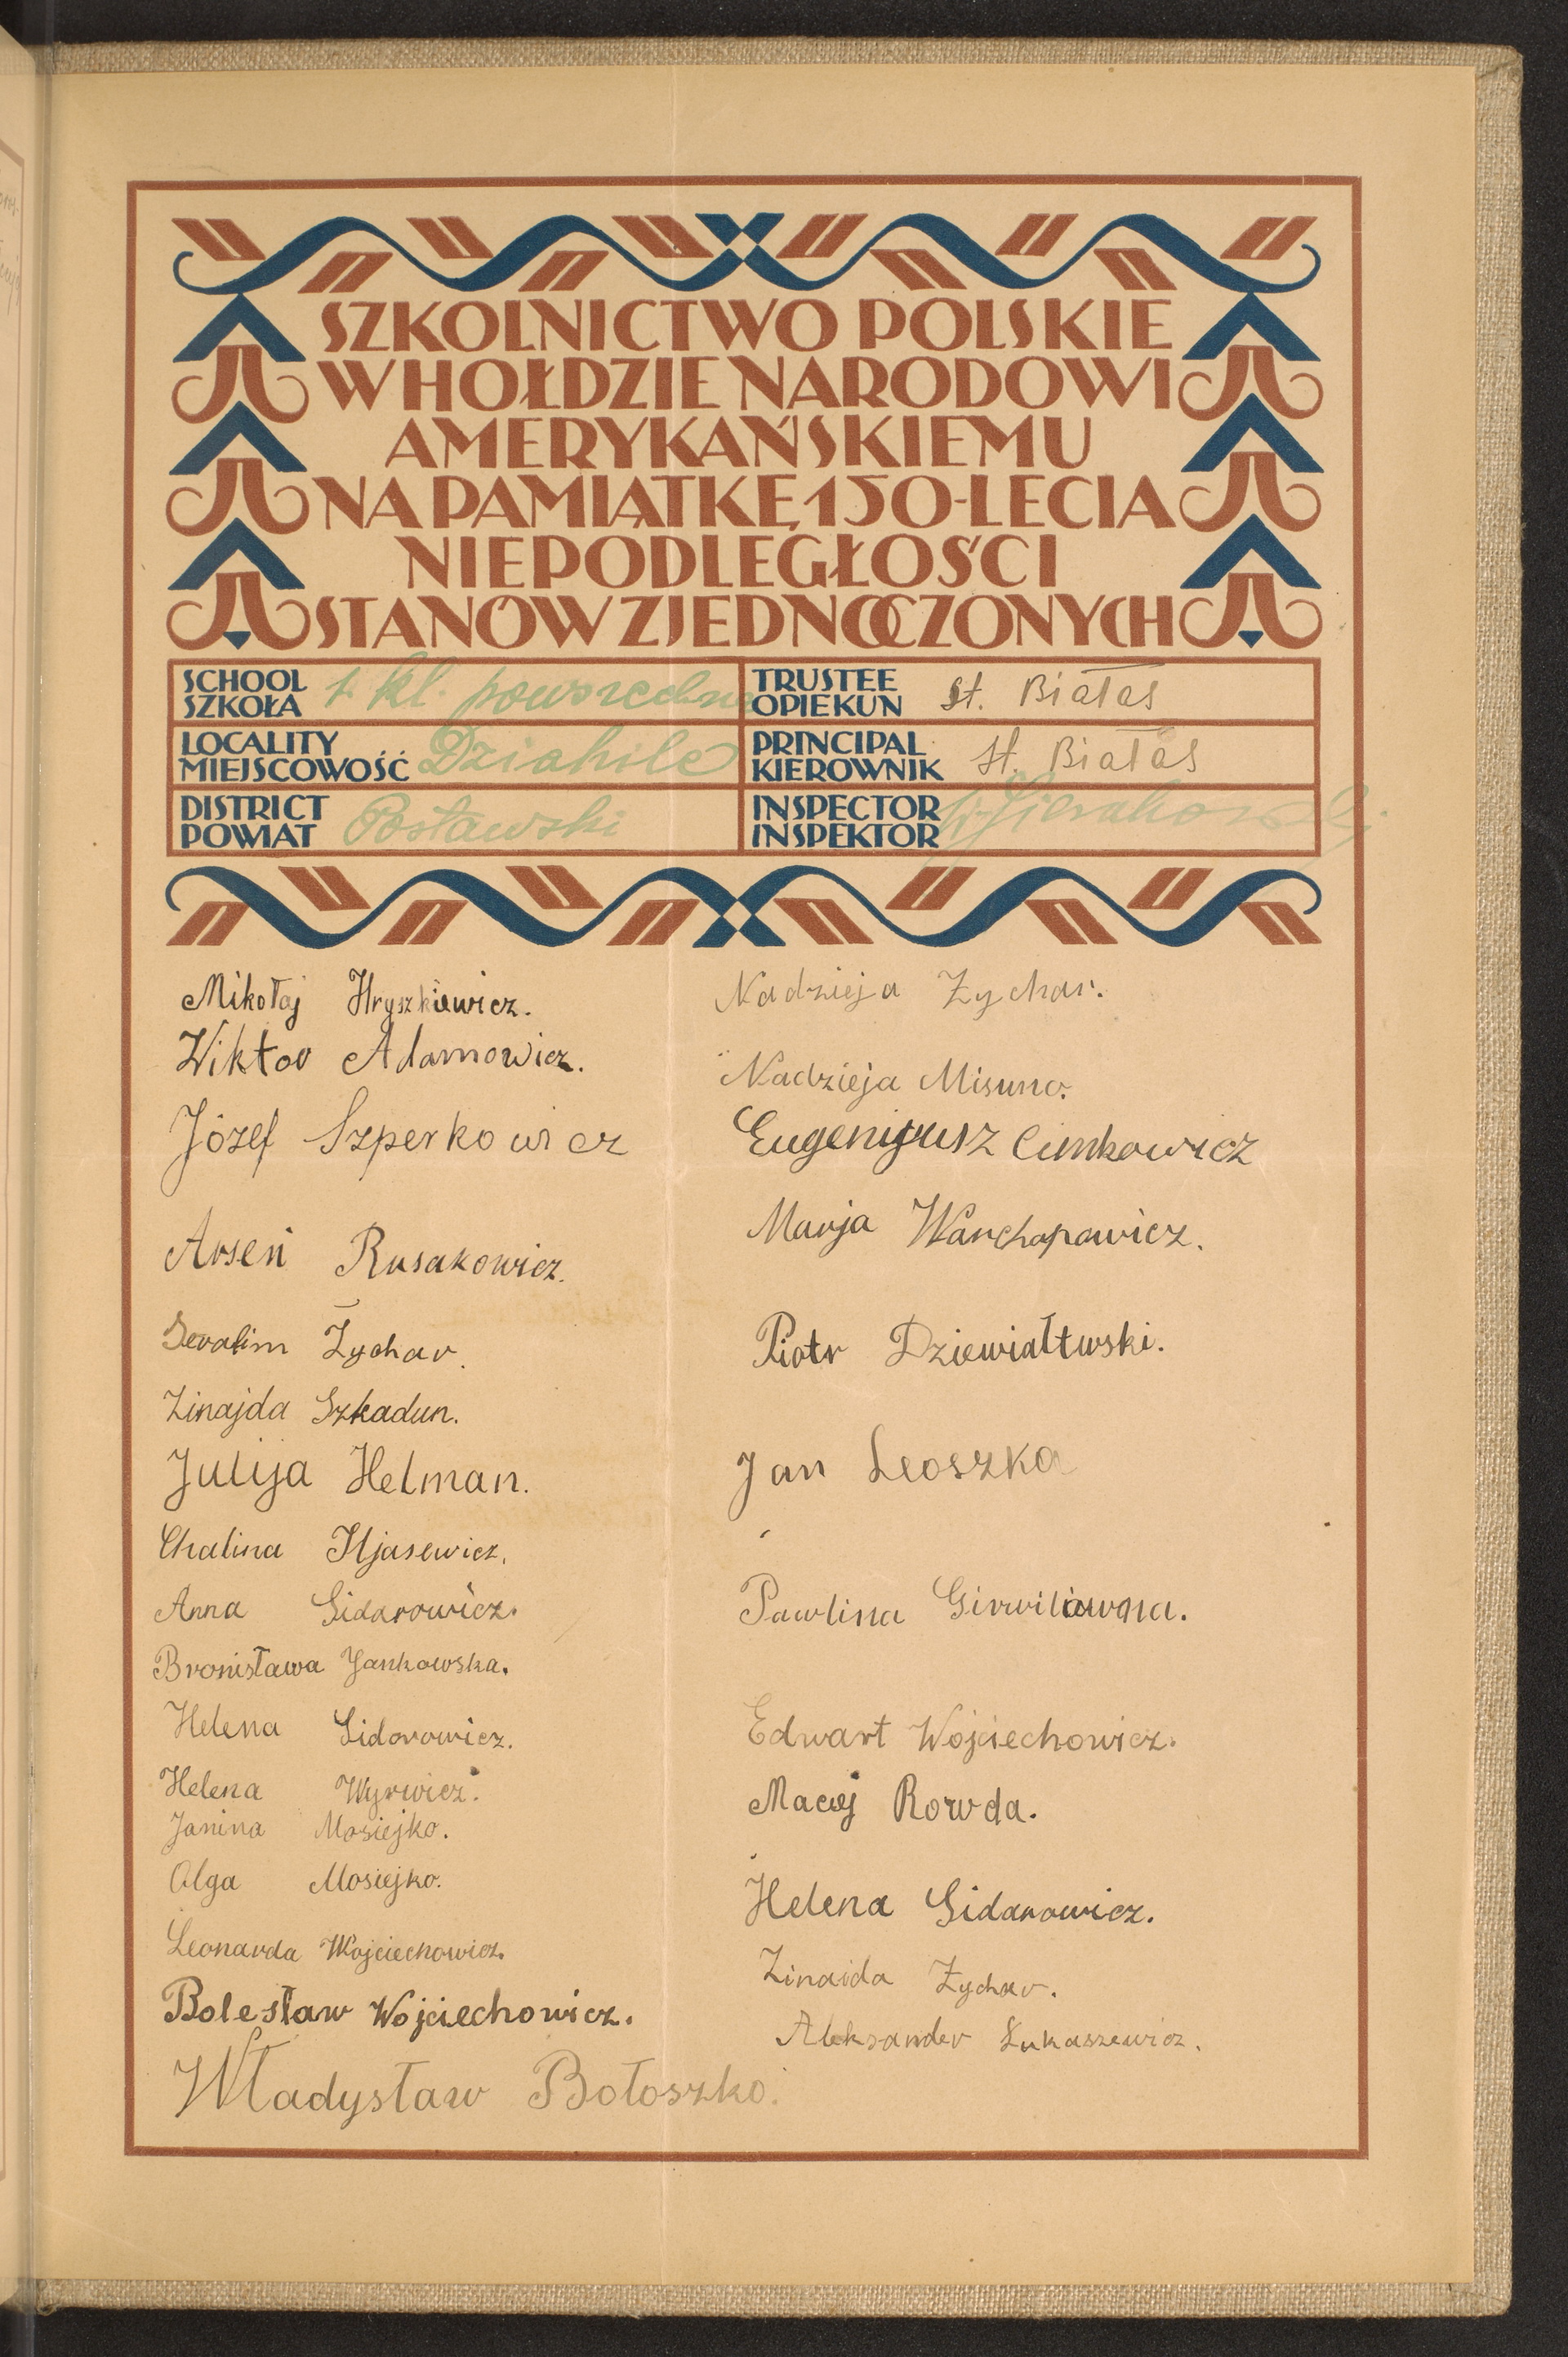 SZKOLNICTWO POLSKIE
W HOŁDZIE NARODOWI
AMERYKAŃSKIEMU
NA PAMIĄTKĘ 150-LECIA
NIEPODLEGŁOŚCI
STANÓW ZJEDNOCZONYCH
SCHOOL
SZKOŁA
1 kl. powszechna
TRUSTEE
OPIEKUN
St. Białas
LOCALITY
MIEJSCOWOŚĆ
Dziahile
PRINCIPAL
KIEROWNIK
St. Białas
DISTRICT
POWIAT
Postawski
INSPECTOR
INSPEKTOR
Mikołaj Hryszkiewicz.
Wiktor Adamowicz.
Józef Szperkowicz
Arseń Rusakowicz.
Serafim Żychar.
Zinajda Szkadun.
Julija Helman.
Chalina Iljasewicz.
Anna Sidarowicz.
Bronisława Jankowska.
Helena Sidorowicz.
Helena Wyrwicz.
Janina Mosiejko.
Olga Mosiejko.
Leonarda Wojciechowicz.
Bolesław Wojciechowicz.
Władysław Bołoszko.
Nadzieja Żychar.
Nadzieja Misuno.
Eugenijusz Cimkowicz
Marja Warchapowicz.
Piotr Dziewiałtwski.
Jan Leoszka
Pawlina Girwiliowna.
Edwart Wojciechowicz.
Maciej Rowda.
Helena Sidarowicz.
Zinaida Żychar.
Aleksander Łukaszewicz.